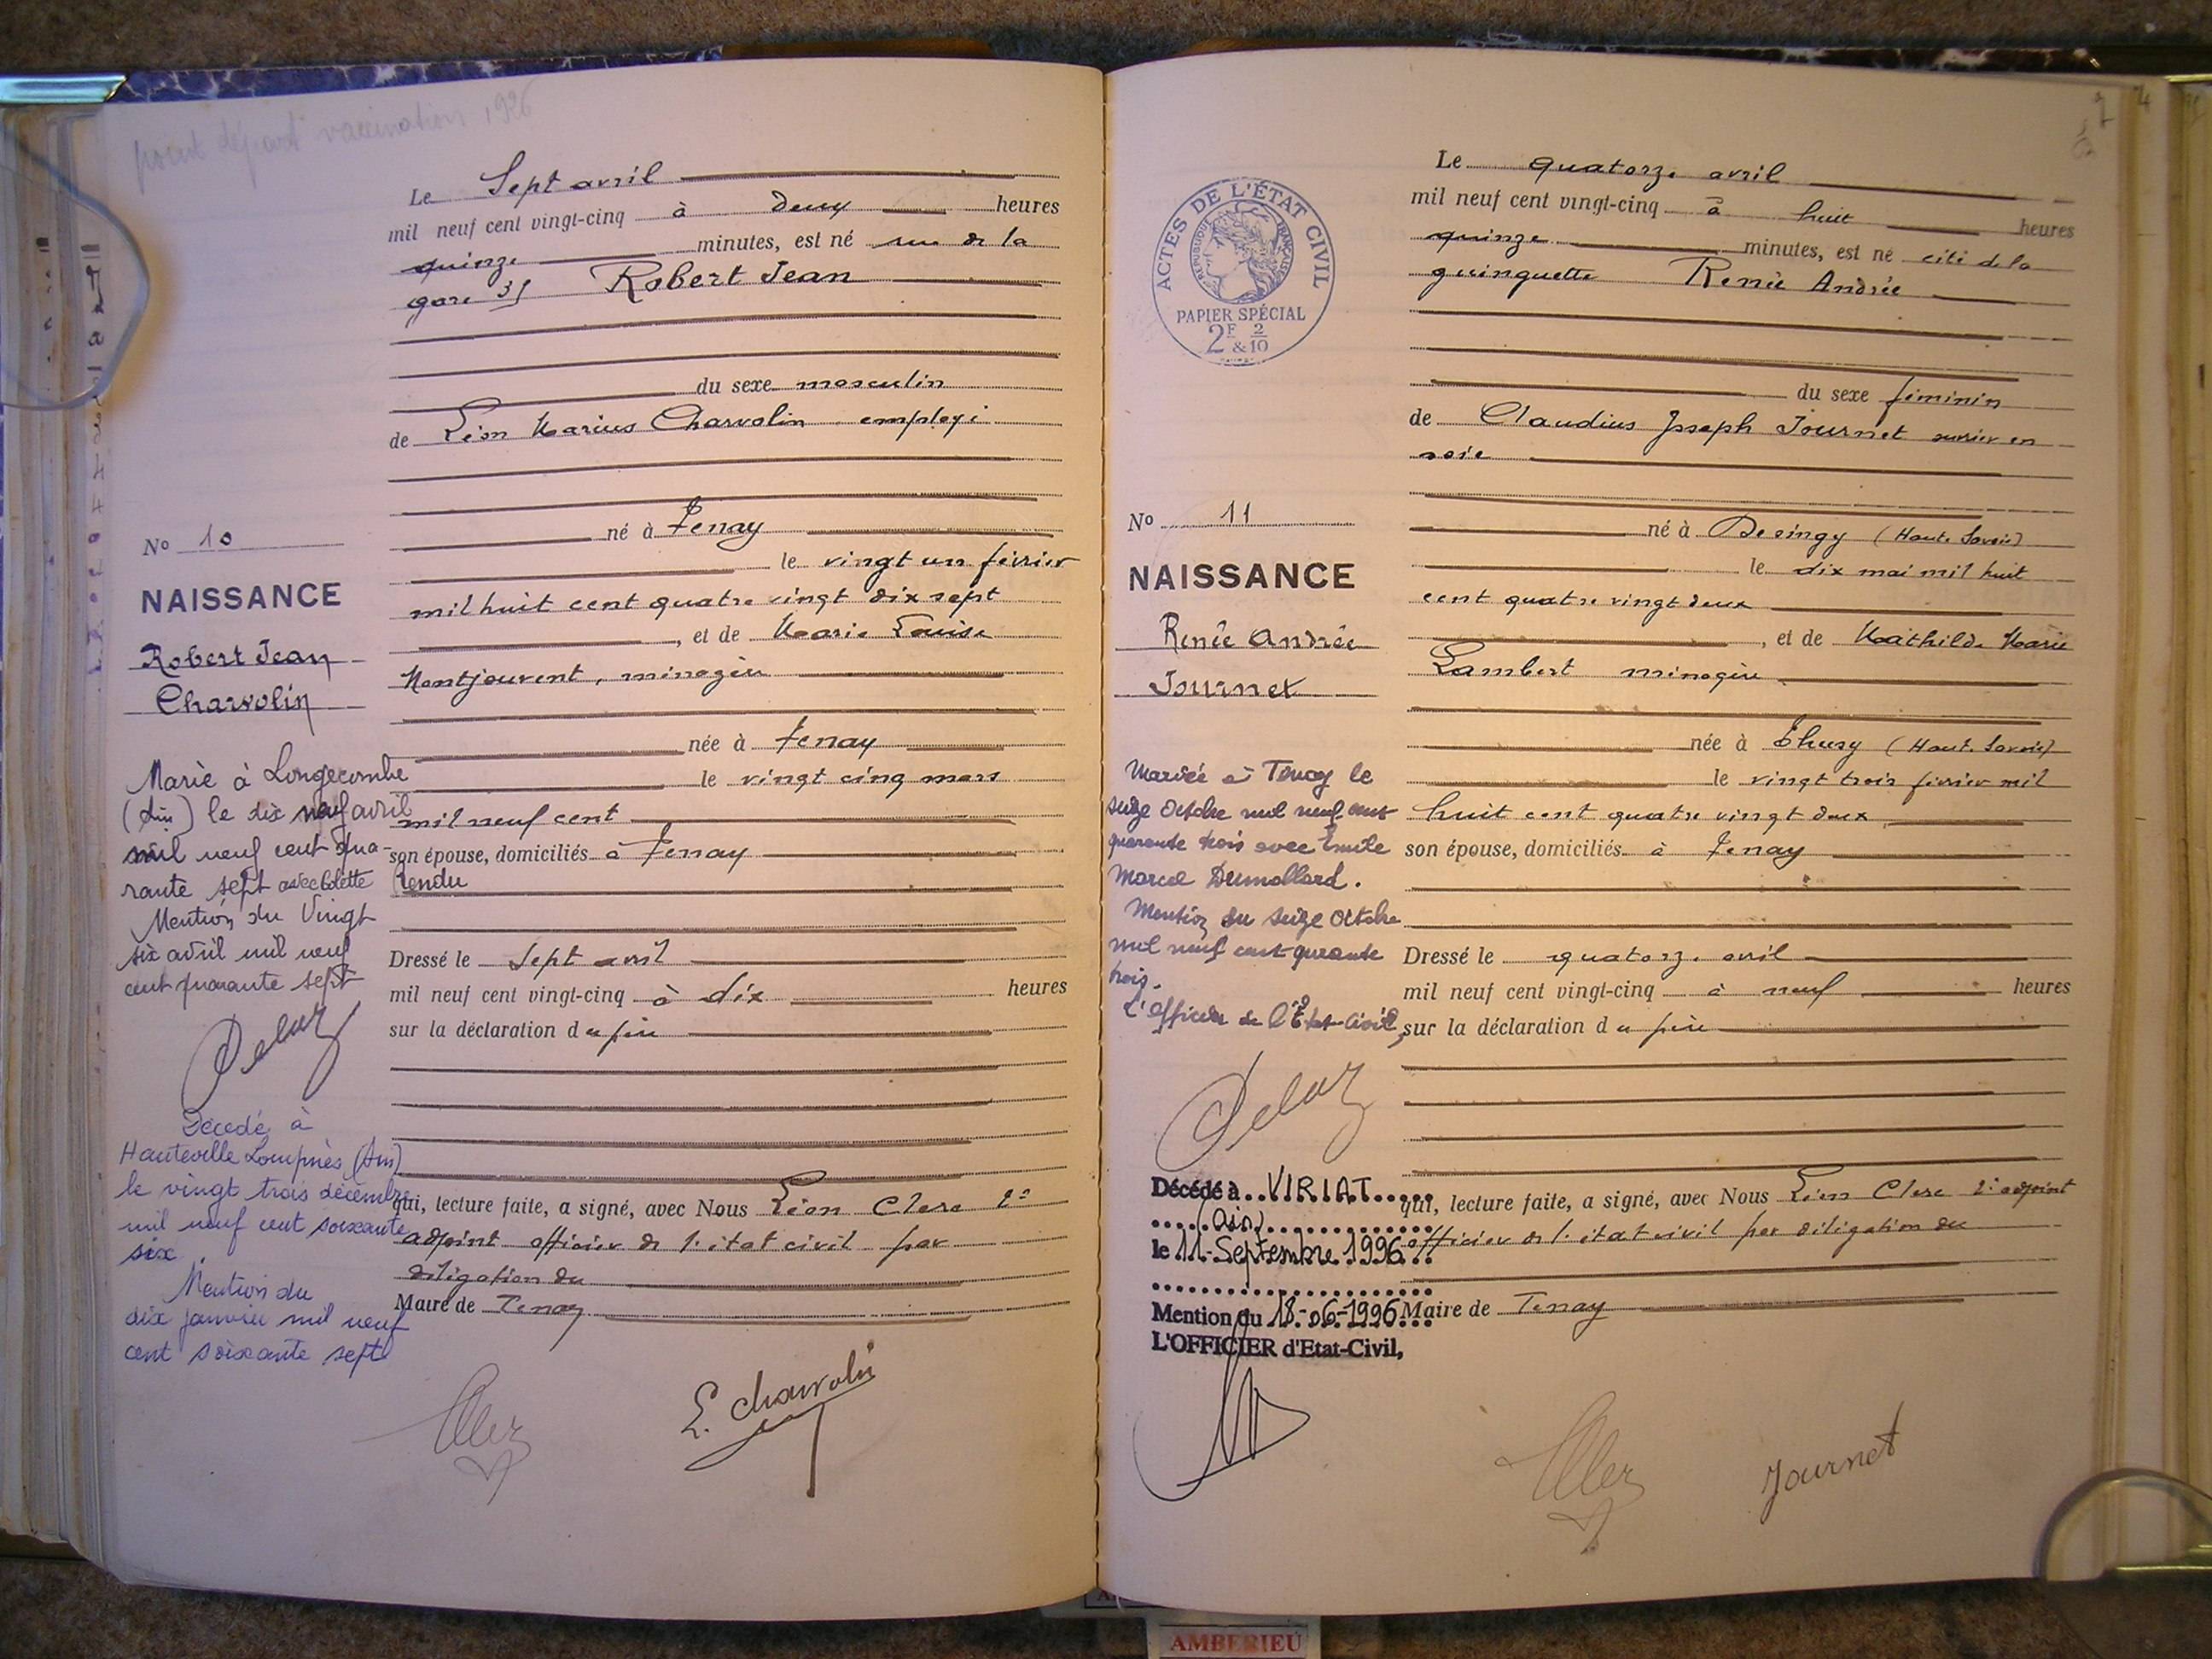 point départ vaccination 1926
Le Sept avril
mil neuf cent vingt-cinq à deux heures
quinze minutes, est né rue de la
gare 31 Robert Jean
du sexe masculin
de Léon Marius Charvolin employé
né à Tenay
le vingt un février
mil huit cent quatre vingt dix sept
, et de Marie Louise
Montjouvent, ménagère
née à Tenay
le vingt cinq mars
mil neuf cent
son épouse, domiciliés à Tenay
Dressé le sept avril
mil neuf cent vingt-cinq à dix heures
sur la déclaration du père
qui, lecture faite, a signé, avec Nous Léon Clerc 2e
adjoint officier de l'état civil par
délégation du
Maire de Tenay
E. Charvolin
No 10
NAISSANCE
Robert Jean
Charvolin
Marié à Longecombe
(Ain) le dix neuf avril
mil neuf cent qua-
rante sept avec Colette
Tendu
Mention du Vingt
six avril mil neuf
cent quarante sept
Décédé à
Hauteville Lompnès (Ain)
le vingt trois décembre
mil neuf cent soixante
six.
Mention du
dix janvier mil neuf
cent soixante sept
Le quatorze avril
mil neuf cent vingt-cinq à huit heures
quinze minutes, est né cité de la
guinguette Renée Andrée
du sexe féminin
de Claudius Joseph Journet ouvrier en
soie
né à Desingy (Haute Savoie)
le dix mai mil huit
cent quatre vingt deux
, et de Mathilde Marie
Lambert ménagère
née à Thusy (Haute Savoie)
le vingt trois février mil
huit cent quatre vingt deux
son épouse, domiciliés à Tenay
Dressé le quatorze avril
mil neuf cent vingt-cinq à neuf heures
sur la déclaration du père
qui, lecture faite, a signé, avec Nous Léon Clerc 2e adjoint
officier de l'état civil par délégation du
Maire de Tenay
Journet
ACTES DE L'ÉTAT CIVIL
RÉPUBLIQUE FRANÇAISE
PAPIER SPÉCIAL
2F & 2/10
No 11
NAISSANCE
Renée Andrée
Journet
Mariée à Tenay le
seize Octobre mil neuf cent
quarante trois avec Emile
Marcel Dumollard.
Mention du seize Octobre
mil neuf cent quarante
trois.
L'Officier de l'Etat-Civil,
Décédé à VIRIAT
(Ain)
le 11 Septembre 1996
Mention du 18-06-1996
L'OFFICIER d'Etat-Civil,
AMBERIEU